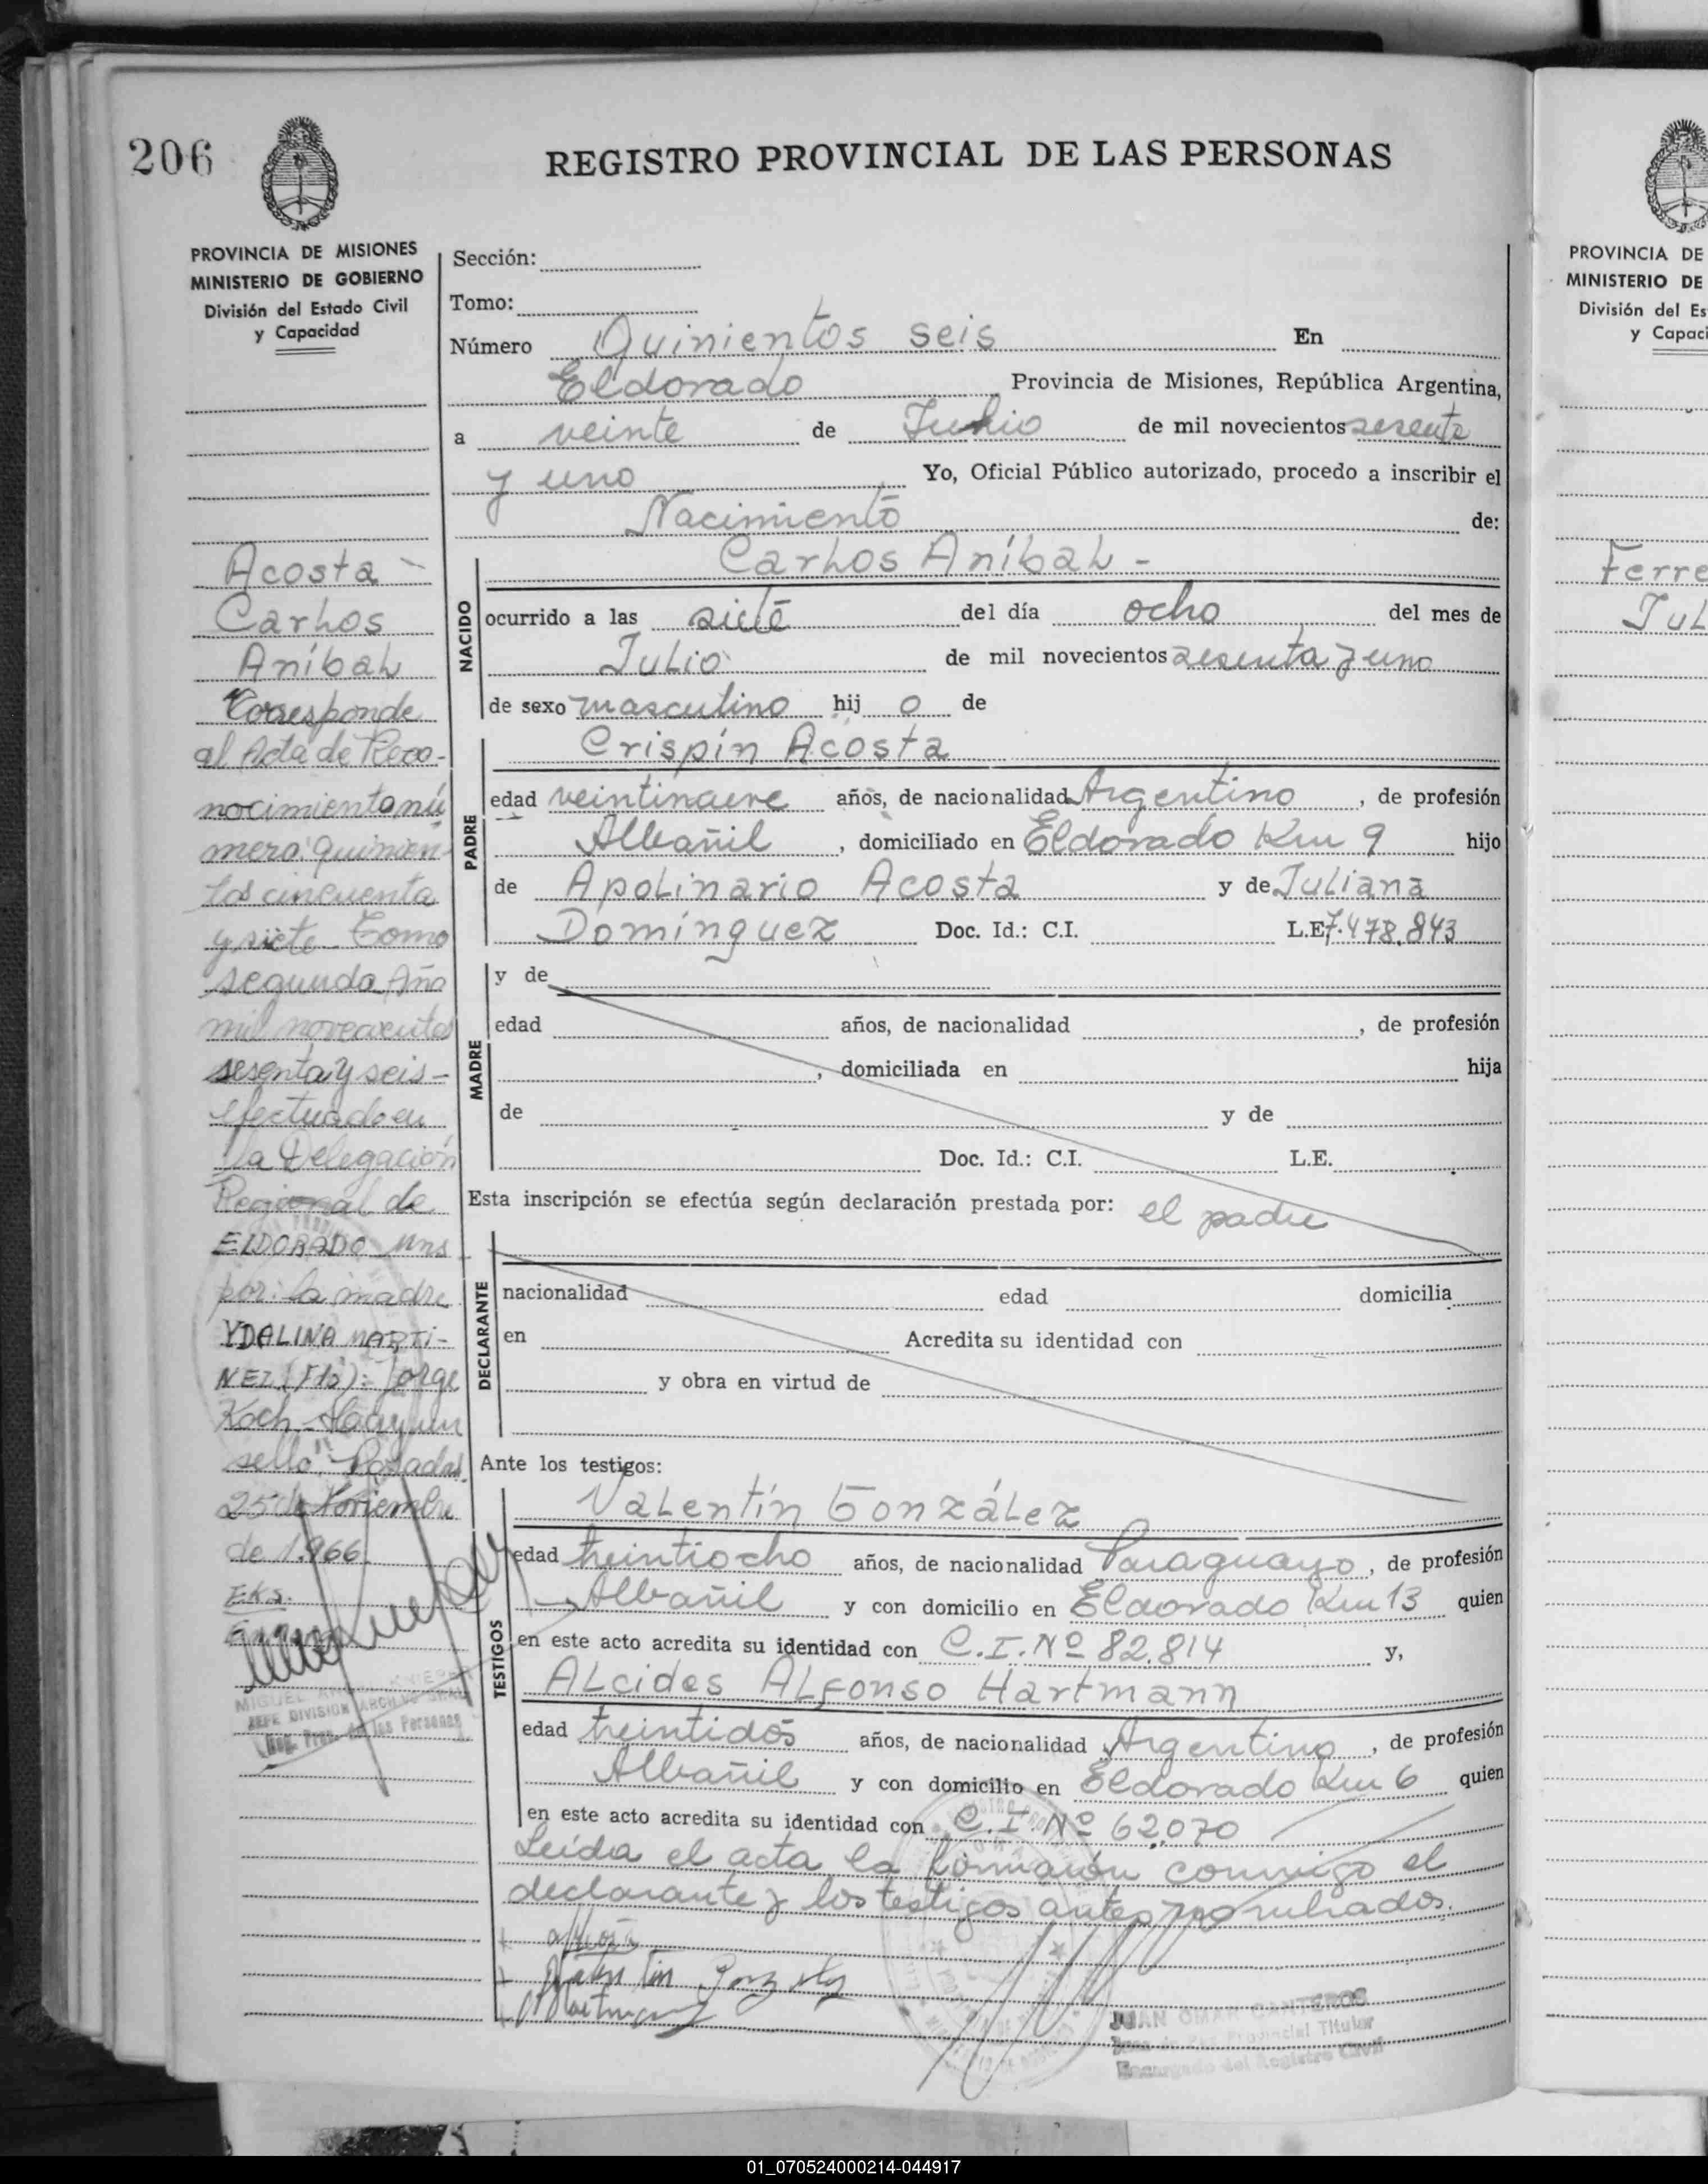 206
REGISTRO PROVINCIAL DE LAS PERSONAS
PROVINCIA DE MISIONES
MINISTERIO DE GOBIERNO
División del Estado Civil
y Capacidad
Acosta
Carlos
Aníbal
Corresponde
al Acta de Reco-
nocimiento nú
mero: quinien
tos cincuenta
y siete Tomo
segundo Año
mil novecientos
sesenta y seis-
efectuado en
la Delegación
Regional de
ELDORADO Mns
por: la madre
YDALINA MARTI-
NEZ (Fdo): Jorge
Koch - Hay un
sello" Posadas.
25 de Noviembre
de 1.966
EKS.
JEFE DIVISION ARCHIVO GRAL.
Reg. Prov. de las Personas
Sección:
Tomo:
Número Quinientos seis En
Eldorado Provincia de Misiones, República Argentina,
a veinte de Julio de mil novecientos sesenta
y uno Yo, Oficial Público autorizado, procedo a inscribir el
Nacimiento de:
NACIDO
Carlos Aníbal -
ocurrido a las siete del día ocho del mes de
Julio de mil novecientos sesenta y uno
de sexo masculino hij o de
PADRE
Crispín Acosta
edad veintinueve años, de nacionalidad Argentino, de profesión
Albañil, domiciliado en Eldorado Km 9 hijo
de Apolinario Acosta y de Juliana
Domínguez Doc. Id.: C.I. L.E. 7.478.843
MADRE
y de
edad años, de nacionalidad , de profesión
, domiciliada en hija
de y de
Doc. Id.: C.I. L.E.
Esta inscripción se efectúa según declaración prestada por: el padre
DECLARANTE
nacionalidad edad domicilia
en Acredita su identidad con
y obra en virtud de
Ante los testigos:
TESTIGOS
Valentín González
edad treintiocho años, de nacionalidad Paraguayo, de profesión
Albañil y con domicilio en Eldorado Km 13 quien
en este acto acredita su identidad con C.I. Nº 82.814 y,
Alcides Alfonso Hartmann
edad treintidós años, de nacionalidad Argentino, de profesión
Albañil y con domicilio en Eldorado Km 6 quien
en este acto acredita su identidad con C.I. Nº 62.070
Leída el acta la firmaron conmigo el
declarante y los testigos antes nombrados.
JUAN OMAR CANTEROS
Provincial Titular
Encargado del Registro Civil
PROVINCIA DE
MINISTERIO DE
División del Es
y Capaci
Ferre
Jul
01_070524000214-044917